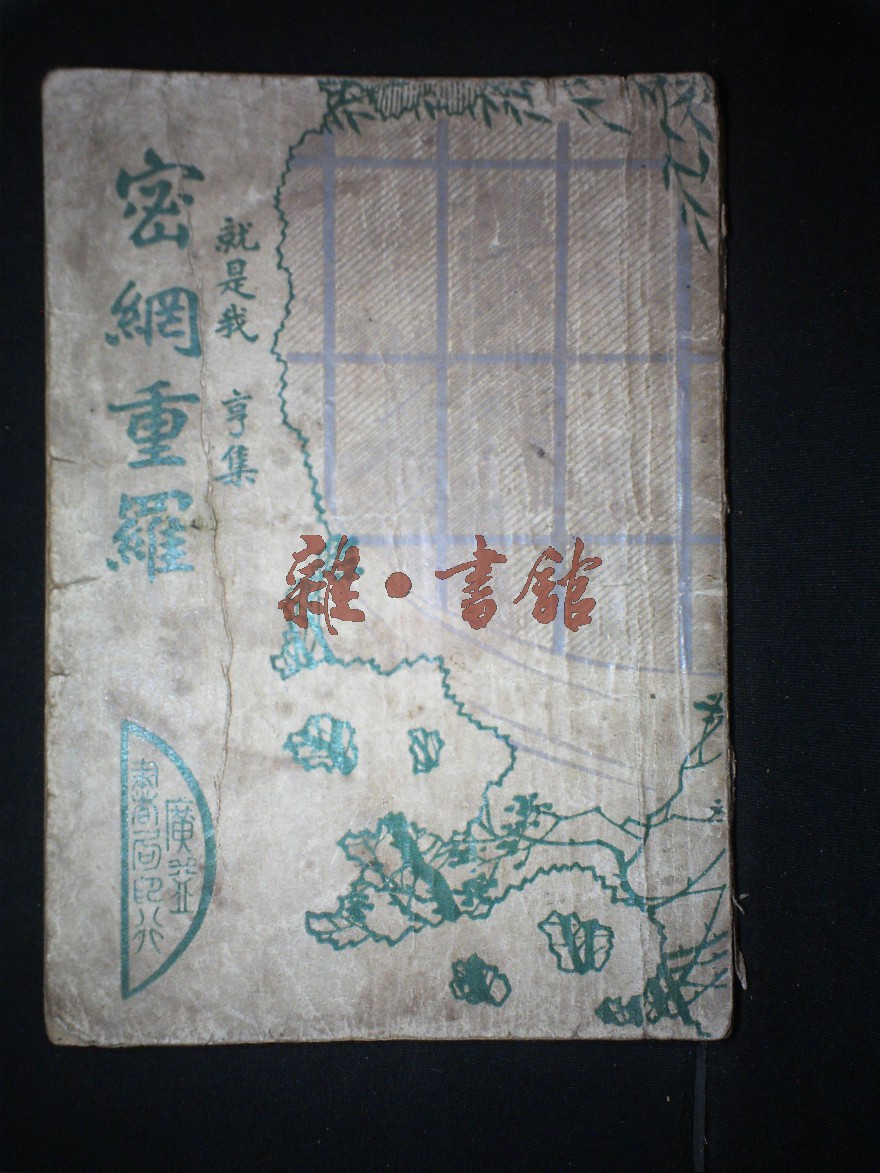 密網重羅
就是我 亨集
雜·書館
廣益
書局印行